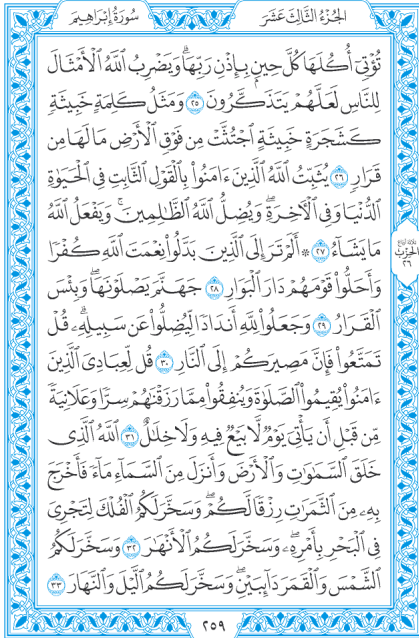 سُورَةُ إِبْرَاهِيم
الجُزْءُ الثَّالِثَ عَشَرَ
تُؤْتِىٓ أُكُلَهَا كُلَّ حِينٍۭ بِإِذْنِ رَبِّهَاۗ وَيَضْرِبُ ٱللَّهُ ٱلْأَمْثَالَ
لِلنَّاسِ لَعَلَّهُمْ يَتَذَكَّرُونَ ٢٥ وَمَثَلُ كَلِمَةٍ خَبِيثَةٍ
كَشَجَرَةٍ خَبِيثَةٍ ٱجْتُثَّتْ مِن فَوْقِ ٱلْأَرْضِ مَا لَهَا مِن
قَرَارٍ ٢٦ يُثَبِّتُ ٱللَّهُ ٱلَّذِينَ ءَامَنُوا۟ بِٱلْقَوْلِ ٱلثَّابِتِ فِى ٱلْحَيَوٰةِ
ٱلدُّنْيَا وَفِى ٱلْءَاخِرَةِۖ وَيُضِلُّ ٱللَّهُ ٱلظَّٰلِمِينَۚ وَيَفْعَلُ ٱللَّهُ
مَا يَشَآءُ ٢٧ ۞ أَلَمْ تَرَ إِلَى ٱلَّذِينَ بَدَّلُوا۟ نِعْمَتَ ٱللَّهِ كُفْرًا
وَأَحَلُّوا۟ قَوْمَهُمْ دَارَ ٱلْبَوَارِ ٢٨ جَهَنَّمَ يَصْلَوْنَهَاۖ وَبِئْسَ
ٱلْقَرَارُ ٢٩ وَجَعَلُوا۟ لِلَّهِ أَندَادًا لِّيُضِلُّوا۟ عَن سَبِيلِهِۦۗ قُلْ
تَمَتَّعُوا۟ فَإِنَّ مَصِيرَكُمْ إِلَى ٱلنَّارِ ٣٠ قُل لِّعِبَادِىَ ٱلَّذِينَ
ءَامَنُوا۟ يُقِيمُوا۟ ٱلصَّلَوٰةَ وَيُنفِقُوا۟ مِمَّا رَزَقْنَٰهُمْ سِرًّا وَعَلَانِيَةً
مِّن قَبْلِ أَن يَأْتِىَ يَوْمٌ لَّا بَيْعٌ فِيهِ وَلَا خِلَٰلٌ ٣١ ٱللَّهُ ٱلَّذِى
خَلَقَ ٱلسَّمَٰوَٰتِ وَٱلْأَرْضَ وَأَنزَلَ مِنَ ٱلسَّمَآءِ مَآءً فَأَخْرَجَ
بِهِۦ مِنَ ٱلثَّمَرَٰتِ رِزْقًا لَّكُمْۖ وَسَخَّرَ لَكُمُ ٱلْفُلْكَ لِتَجْرِىَ
فِى ٱلْبَحْرِ بِأَمْرِهِۦۖ وَسَخَّرَ لَكُمُ ٱلْأَنْهَٰرَ ٣٢ وَسَخَّرَ لَكُمُ
ٱلشَّمْسَ وَٱلْقَمَرَ دَآئِبَيْنِۖ وَسَخَّرَ لَكُمُ ٱلَّيْلَ وَٱلنَّهَارَ ٣٣
الحِزْب
٢٦
٢٥٩